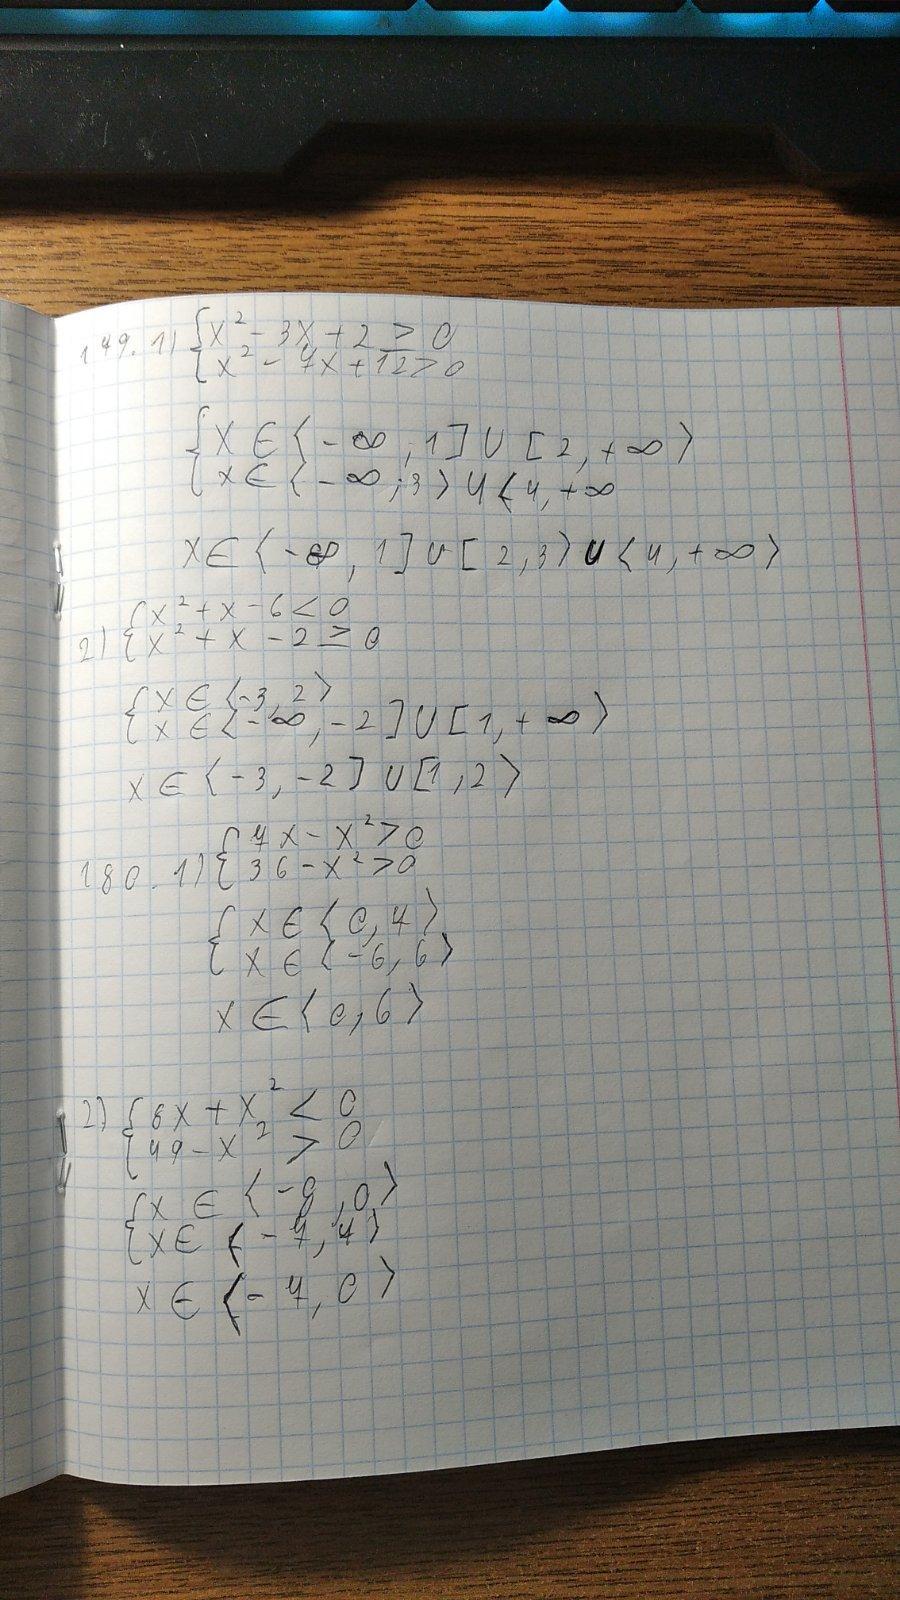 179. 1) { x² - 3x + 2 ≥ 0
{ x² - 7x + 12 > 0
{ x ∈ ⟨-∞, 1] ∪ [2, +∞⟩
{ x ∈ ⟨-∞; 3⟩ ∪ ⟨4, +∞
x ∈ ⟨-∞, 1] ∪ [2, 3⟩ ∪ ⟨4, +∞⟩
{ x² + x - 6 < 0
2) { x² + x - 2 ≥ 0
{ x ∈ ⟨-3, 2⟩
{ x ∈ ⟨-∞, -2] ∪ [1, +∞⟩
x ∈ ⟨-3, -2] ∪ [1, 2⟩
{ 7x - x² > 0
180. 1) { 36 - x² > 0
{ x ∈ ⟨0, 7⟩
{ x ∈ ⟨-6, 6⟩
x ∈ ⟨0, 6⟩
2) { 8x + x² < 0
{ 49 - x² > 0
{ x ∈ ⟨-8, 0⟩
{ x ∈ ⟨-7, 7⟩
x ∈ ⟨-7, 0⟩